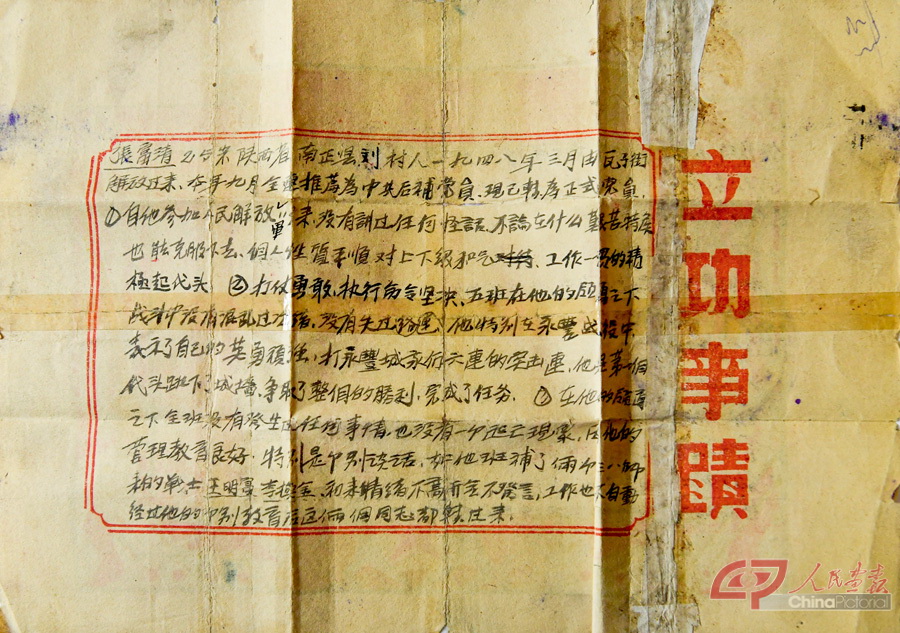 立功事蹟
張富清 25岁米 陕西省南正县 村人一九四八年三月由瓦子街
解放过来，本年九月全連推荐為中共后補党員，现已轉為正式党員。
①自他参加人民解放軍以来，没有講过任何怪話，不論在什么艱苦 
也能克服下去，個人性質和順对上下级和气，工作一貫的積
極起代头 ②打仗勇敢，执行命令坚决，五班在他的領導之下
战斗中没有混乱过 ，没有失过 ，他特别在永豐战役中
表示了自己的英勇頑強，打永豐城我们六連的突击連，他是第一個
代头跳下了城墙，争取了整個的勝利，完成了任务。③在他的領導
之下全班没有發生过任何事情，也没有一个逃亡現象，因他的
管理教育良好，特别是个别談话，如他班補了倆个 師
来的战士王明 李 ，初来情绪不高 不發言，工作也不自動
经过他的个别教育后这倆個同志都轉过来。
人民畫報
ChinaPictorial